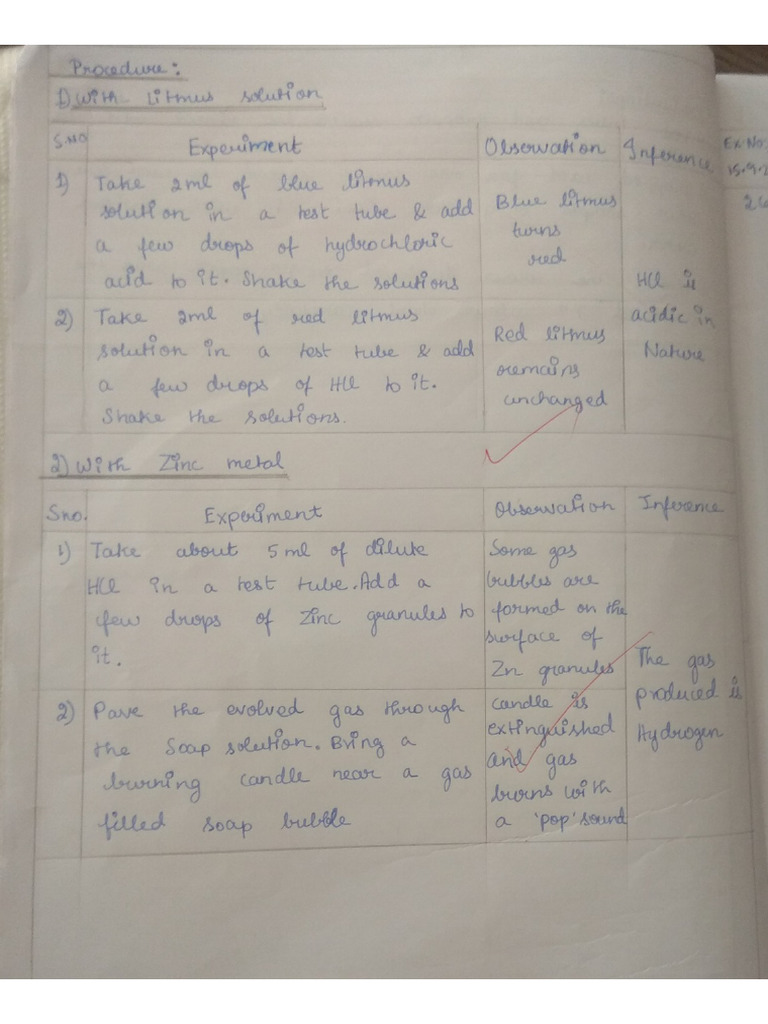 Procedure:
1) With Litmus solution
S.NO Experiment Observation Inference
1) Take 2ml of blue litmus
solution in a test tube & add
a few drops of hydrochloric
acid to it. Shake the solutions
Blue litmus
turns
red
2) Take 2ml of red litmus
solution in a test tube & add
a few drops of HCl to it.
Shake the solutions.
Red litmus
remains
unchanged
HCl is
acidic in
Nature
2) With Zinc metal
Sno. Experiment Observation Inference
1) Take about 5 ml of dilute
HCl in a test tube. Add a
few drops of Zinc granules to
it.
Some gas
bubbles are
formed on the
surface of
Zn granules
2) Pave the evolved gas through
the Soap solution. Bring a
burning candle near a gas
filled soap bubble
Candle is
extinguished
and gas
burns with
a 'pop' sound
The gas
produced is
Hydrogen
Ex No: